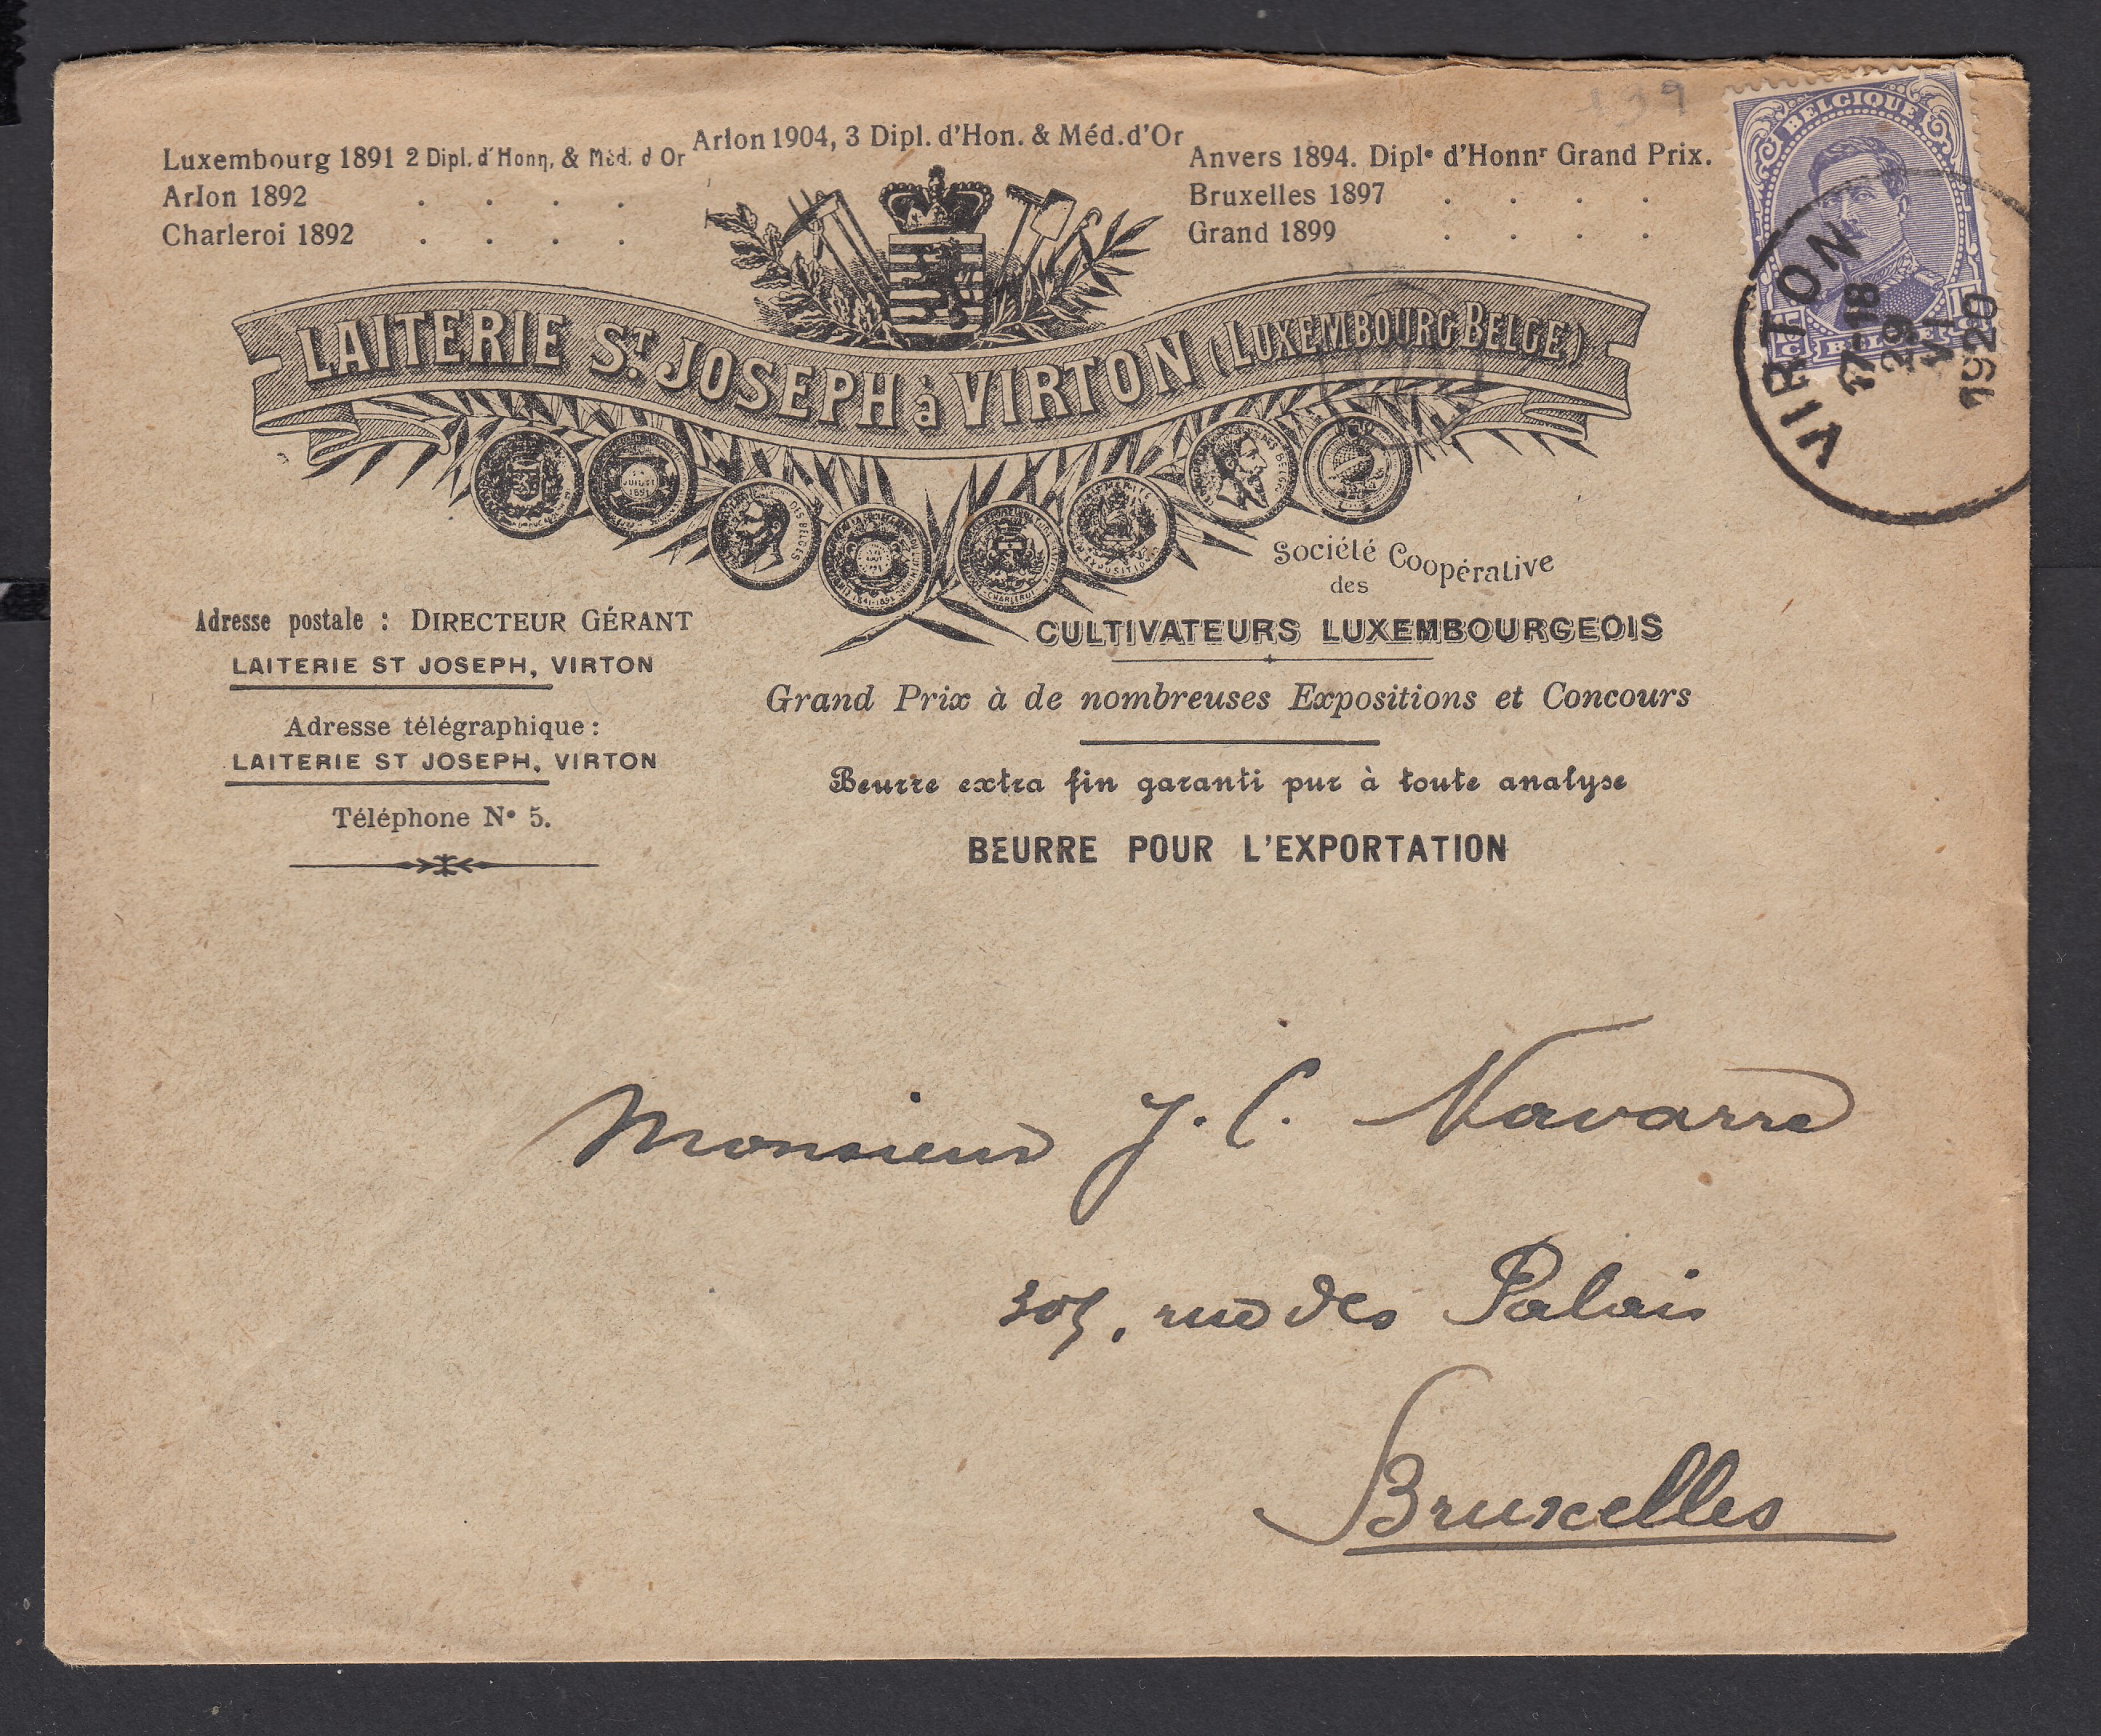 Arlon 1904, 3 Dipl. d'Hon. & Méd. d'Or
Luxembourg 1891 2 Dipl. d'Honn. & Méd. d Or
Arlon 1892 . . . .
Charleroi 1892 . . . .
Anvers 1894. Diplᵉ d'Honnʳ Grand Prix.
Bruxelles 1897 . . . .
Grand 1899 . . . .
BELGIQUE
BELGIE
VIRTON
17-18
29
VI
1920
LAITERIE ST. JOSEPH à VIRTON (LUXEMBOURG BELGE)
Société Coopérative
des
CULTIVATEURS LUXEMBOURGEOIS
Grand Prix à de nombreuses Expositions et Concours
Beurre extra fin garanti pur à toute analyse
BEURRE POUR L'EXPORTATION
Adresse postale : DIRECTEUR GÉRANT
LAITERIE ST JOSEPH, VIRTON
Adresse télégraphique :
LAITERIE ST JOSEPH, VIRTON
Téléphone N° 5.
Monsieur J. C. Navarre
305, rue des Palais
Bruxelles